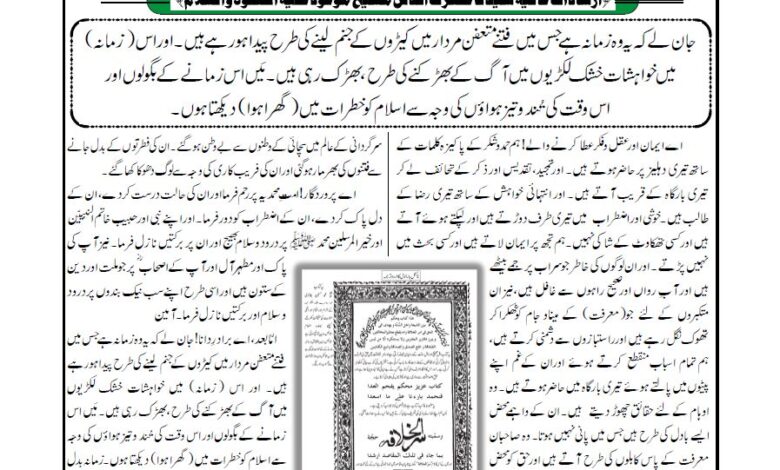 ارشادات عالیہ سیدنا حضرت اقدس مسیح موعود علیہ الصلوٰۃ والسلام
جان لے کہ یہ وہ زمانہ ہے جس میں فتنے متعفن مردار میں کیڑوں کے جنم لینے کی طرح پیدا ہو رہے ہیں۔ اور اس (زمانہ)
میں خواہشات خشک لکڑیوں میں آگ کے بھڑکنے کی طرح، بھڑک رہی ہیں۔ میں اس زمانے کے بگولوں اور
اس وقت کی تُند و تیز ہواؤں کی وجہ سے اسلام کو خطرات میں (گھرا ہوا) دیکھتا ہوں۔
اے ایمان اور عقل و فکر عطا کرنے والے! ہم حمد و شکر کے پاکیزہ کلمات کے
ساتھ تیری دہلیز پر حاضر ہوتے ہیں۔ اور تمجید، تقدیس اور ذکر کے تحائف لے کر
تیری بارگاہ کے قریب آتے ہیں۔ اور انتہائی خواہش کے ساتھ تیری رضا کے
طالب ہیں۔ خوشی اور اضطراب میں تیری طرف دوڑتے ہیں اور لپکتے ہوئے آتے
ہیں اور کسی تھکاوٹ کے شاکی نہیں۔ ہم تجھ پر ایمان لاتے ہیں اور کسی بحث میں
نہیں پڑتے۔ اور ان لوگوں کی خاطر جو سراب پر جمے بیٹھے
ہیں اور آب رواں اور صحیح راہوں سے غافل ہیں، نیز ان
متکبروں کے لئے جو (معرفت) کے مینا و جام کو ٹھکرا کر
تھوک نگل رہے ہیں۔ اور راستبازوں سے دشمنی کرتے ہیں،
ہم تمام اسباب منقطع کرتے ہوئے اور ان کے غم اپنے
سینوں میں پالتے ہوئے تیری بارگاہ میں حاضر ہوتے ہیں۔ وہ
اوہام کے لئے حقائق چھوڑ دیتے ہیں۔ ان کے واہمے محض
ایسے بادل کی طرح ہیں جس میں پانی نہیں ہوتا۔ وہ صاحبان
معرفت کے پاس کاہلوں کی طرح آتے ہیں اور حق کو محض
سرگردانی کے عالم میں سچائی کے وطنوں سے بے وطن ہو گئے۔ ان کی فطرتوں کے بدل جانے
سے فتنوں کی بھرمار ہو گئی اور ان کی فریب کاری کی وجہ سے لوگ دھوکا کھا گئے۔
اے پروردگار! امت محمدیہ پر رحم فرما اور ان کی حالت درست کر دے، ان کے
دل پاک کر دے، ان کے اضطراب کو دور فرما۔ اور اپنے نبی اور حبیب خاتم النبیین
اور خیر المرسلین محمد ﷺ پر درود و سلام بھیج اور ان پر برکتیں نازل فرما۔ نیز آپ کی
پاک اور مطہر آل اور آپ کے اصحاب پر جو ملت اور دین
کے ستون ہیں اور اسی طرح اپنے سب نیک بندوں پر درود
و سلام اور برکتیں نازل فرما۔ آمین
امّا بعد، اے برادر دانا! جان لے کہ یہ وہ زمانہ ہے جس میں
فتنے متعفن مردار میں کیڑوں کے جنم لینے کی طرح پیدا ہو رہے
ہیں۔ اور اس (زمانہ) میں خواہشات خشک لکڑیوں
میں آگ کے بھڑکنے کی طرح، بھڑک رہی ہیں۔ میں اس
زمانے کے بگولوں اور اس وقت کی تُند و تیز ہواؤں کی وجہ
سے اسلام کو خطرات میں (گھرا ہوا) دیکھتا ہوں۔ زمانہ بدل
کتاب عزیز محکم یفحم العدا
فنحمد بارءنا علی ما اسعدا
سر الخلافہ